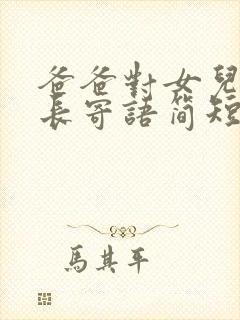 爸爸對女兒
長寄語简短
馬其平